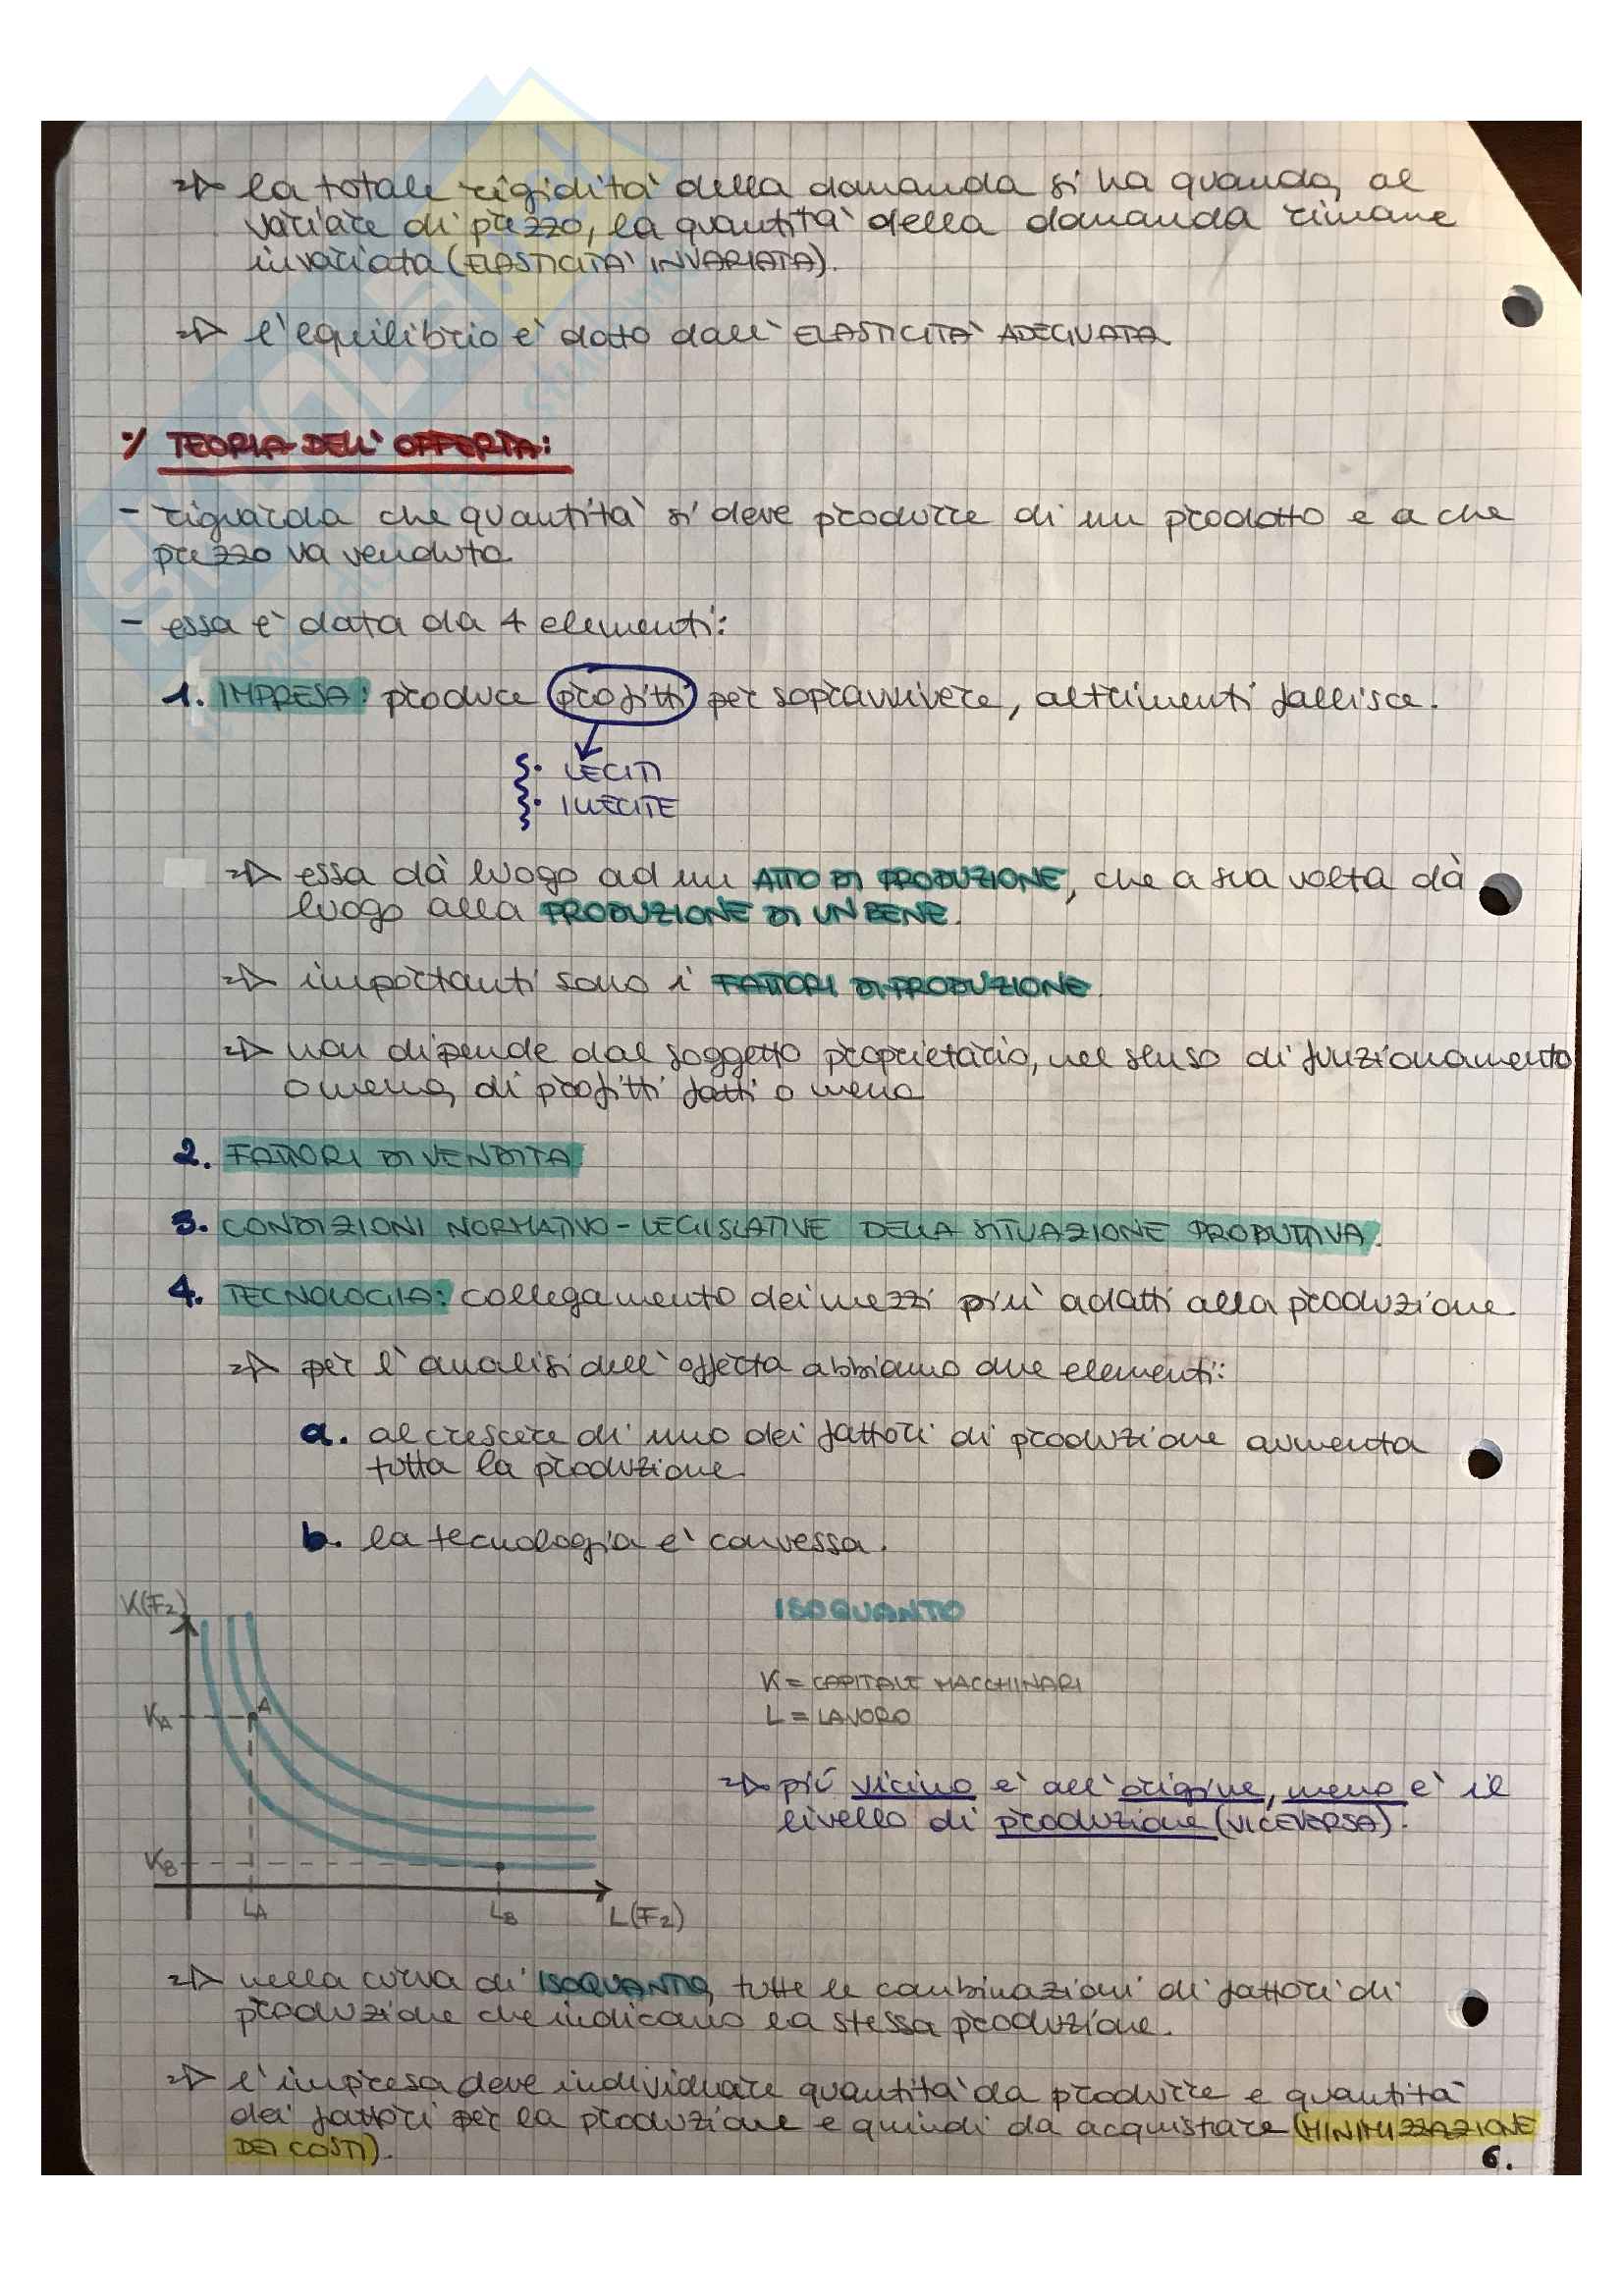 => la totale rigidità della domanda si ha quando, al
variare di prezzo, la quantità della domanda rimane
invariata (ELASTICITA' INVARIATA).
=> l'equilibrio è dato dall' ELASTICITA' ADEGUATA.
·/ TEORIA DELL' OFFERTA:
- riguarda che quantità si deve produrre di un prodotto e a che
prezzo va venduto.
- essa è data da 4 elementi:
1. IMPRESA: produce profitti per sopravvivere, altrimenti fallisce.
· LECITI
· ILLECITE
=> essa dà luogo ad un ATTO DI PRODUZIONE, che a sua volta dà
luogo alla PRODUZIONE DI UN BENE.
=> importanti sono i FATTORI DI PRODUZIONE.
=> non dipende dal soggetto proprietario, nel senso di funzionamento
o meno, di profitti fatti o meno
2. FATTORI DI VENDITA
3. CONDIZIONI NORMATIVO-LEGISLATIVE DELLA SITUAZIONE PRODUTTIVA.
4. TECNOLOGIA: collegamento dei mezzi più adatti alla produzione.
=> per l'analisi dell'offerta abbiamo due elementi:
a. al crescere di uno dei fattori di produzione aumenta
tutta la produzione.
b. la tecnologia è convessa.
K(F2)
ISOQUANTO
K = CAPITALE MACCHINARI
L = LAVORO
KA
A
=> più vicino è all'origine, meno è il
livello di produzione (VICEVERSA).
KB
LA
LB
L(F2)
=> nella curva di ISOQUANTO, tutte le combinazioni di fattori di
produzione che indicano la stessa produzione.
=> l'impresa deve individuare quantità da produrre e quantità
dei fattori per la produzione e quindi da acquistare (MINIMIZZAZIONE
DEI COSTI).
6.